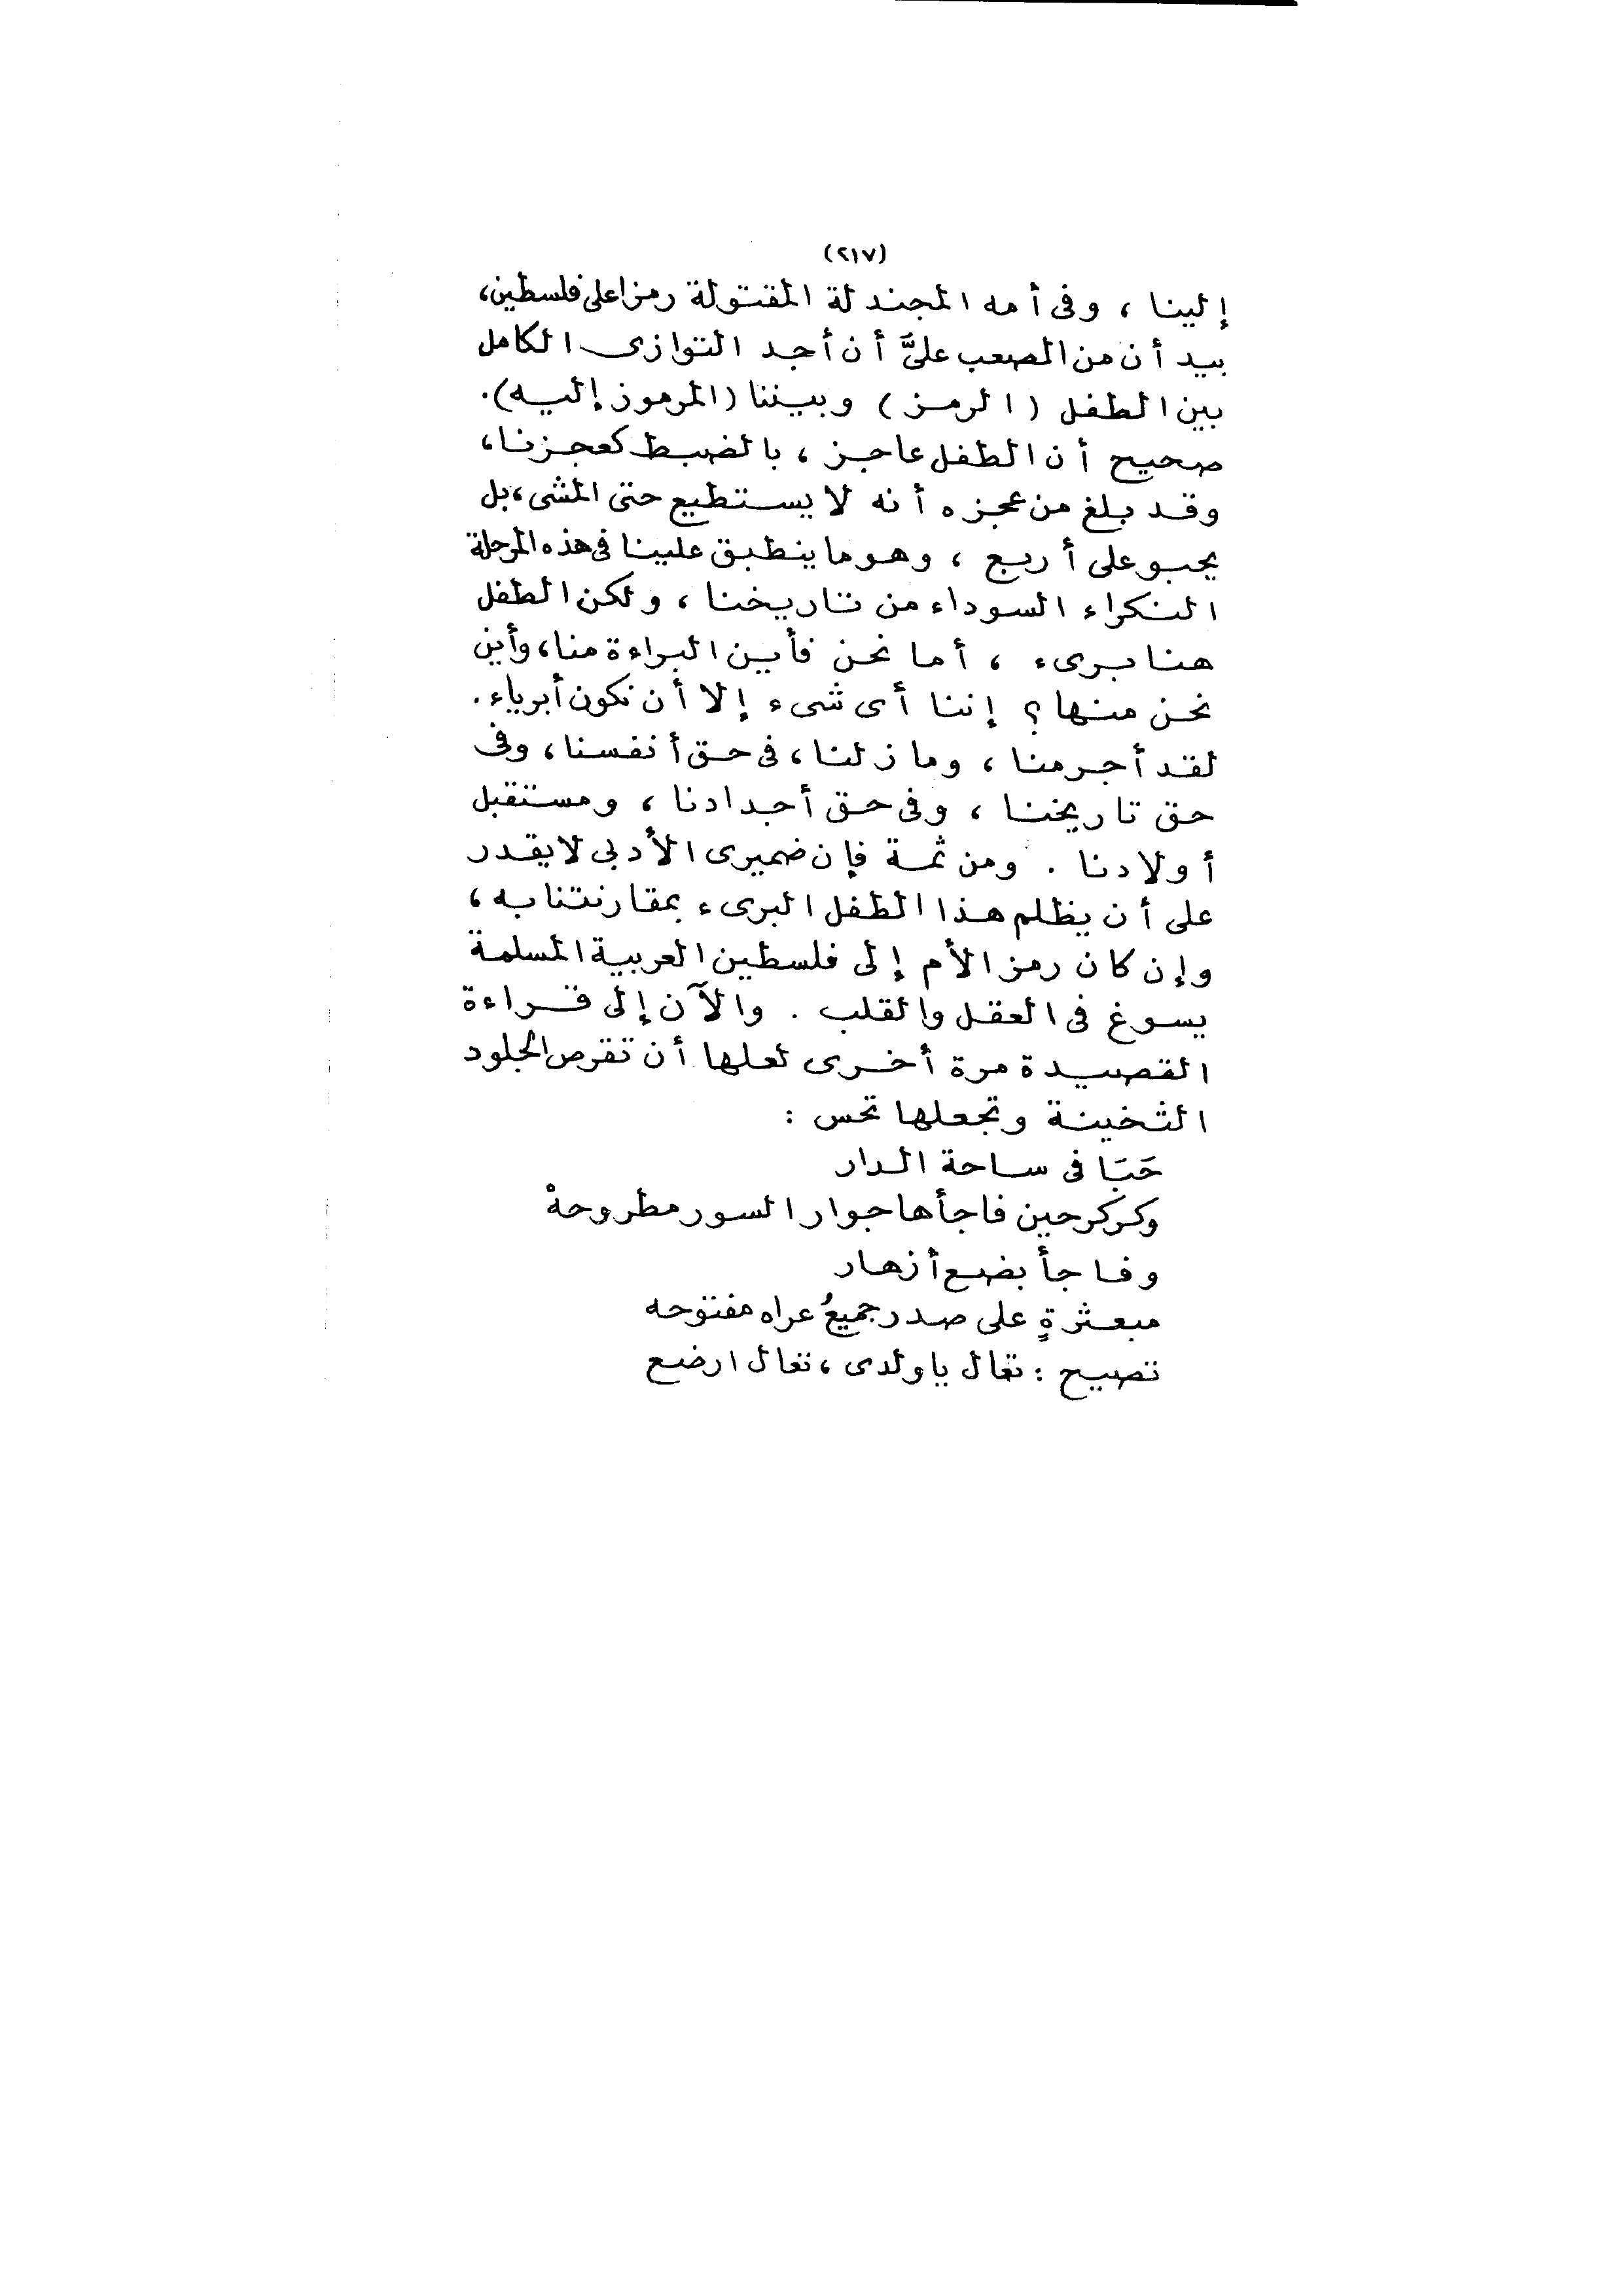 (٢١٧)
إلينا ، وفى أمه المجندلة المقتولة رمزا على فلسطين،
بيد أن من الصعب علىَّ أن أجد التوازى الكامل
بين الطفل (الرمز) وبيننا (المرموز إليه).
صحيح أن الطفل عاجز ، بالضبط كعجزنا،
وقد بلغ من عجزه أنه لا يستطيع حتى المشى ، بل
يحبو على أربع ، وهو ما ينطبق علينا فى هذه المرحلة
النكراء السوداء من تاريخنا ، ولكن الطفل
هنا برىء ، أما نحن فأين البراءة منا، وأين
نحن منها ؟ إننا أى شىء إلا أن نكون أبرياء .
لقد أجرمنا ، وما زلنا ، فى حق أنفسنا ، وفى
حق تاريخنا ، وفى حق أجدادنا ، ومستقبل
أولادنا . ومن ثمة فإن ضميرى الأدبى لا يقدر
على أن يظلم هذا الطفل البرىء بمقارنتنا به ،
وإن كان رمز الأم إلى فلسطين العربية المسلمة
يسوغ فى العقل والقلب . والآن إلى قراءة
القصيدة مرة أخرى لعلها أن تقرص الجلود
الثخينة وتجعلها تحس :
حَبَا فى ساحة الدار
وكركر حين فاجأها جوار السور مطروحهْ
وفاجأ بضع أزهار
مبعثرةٍ على صدر جميعُ عراه مفتوحه
تصيح : تعال يا ولدى ، تعال ارضع